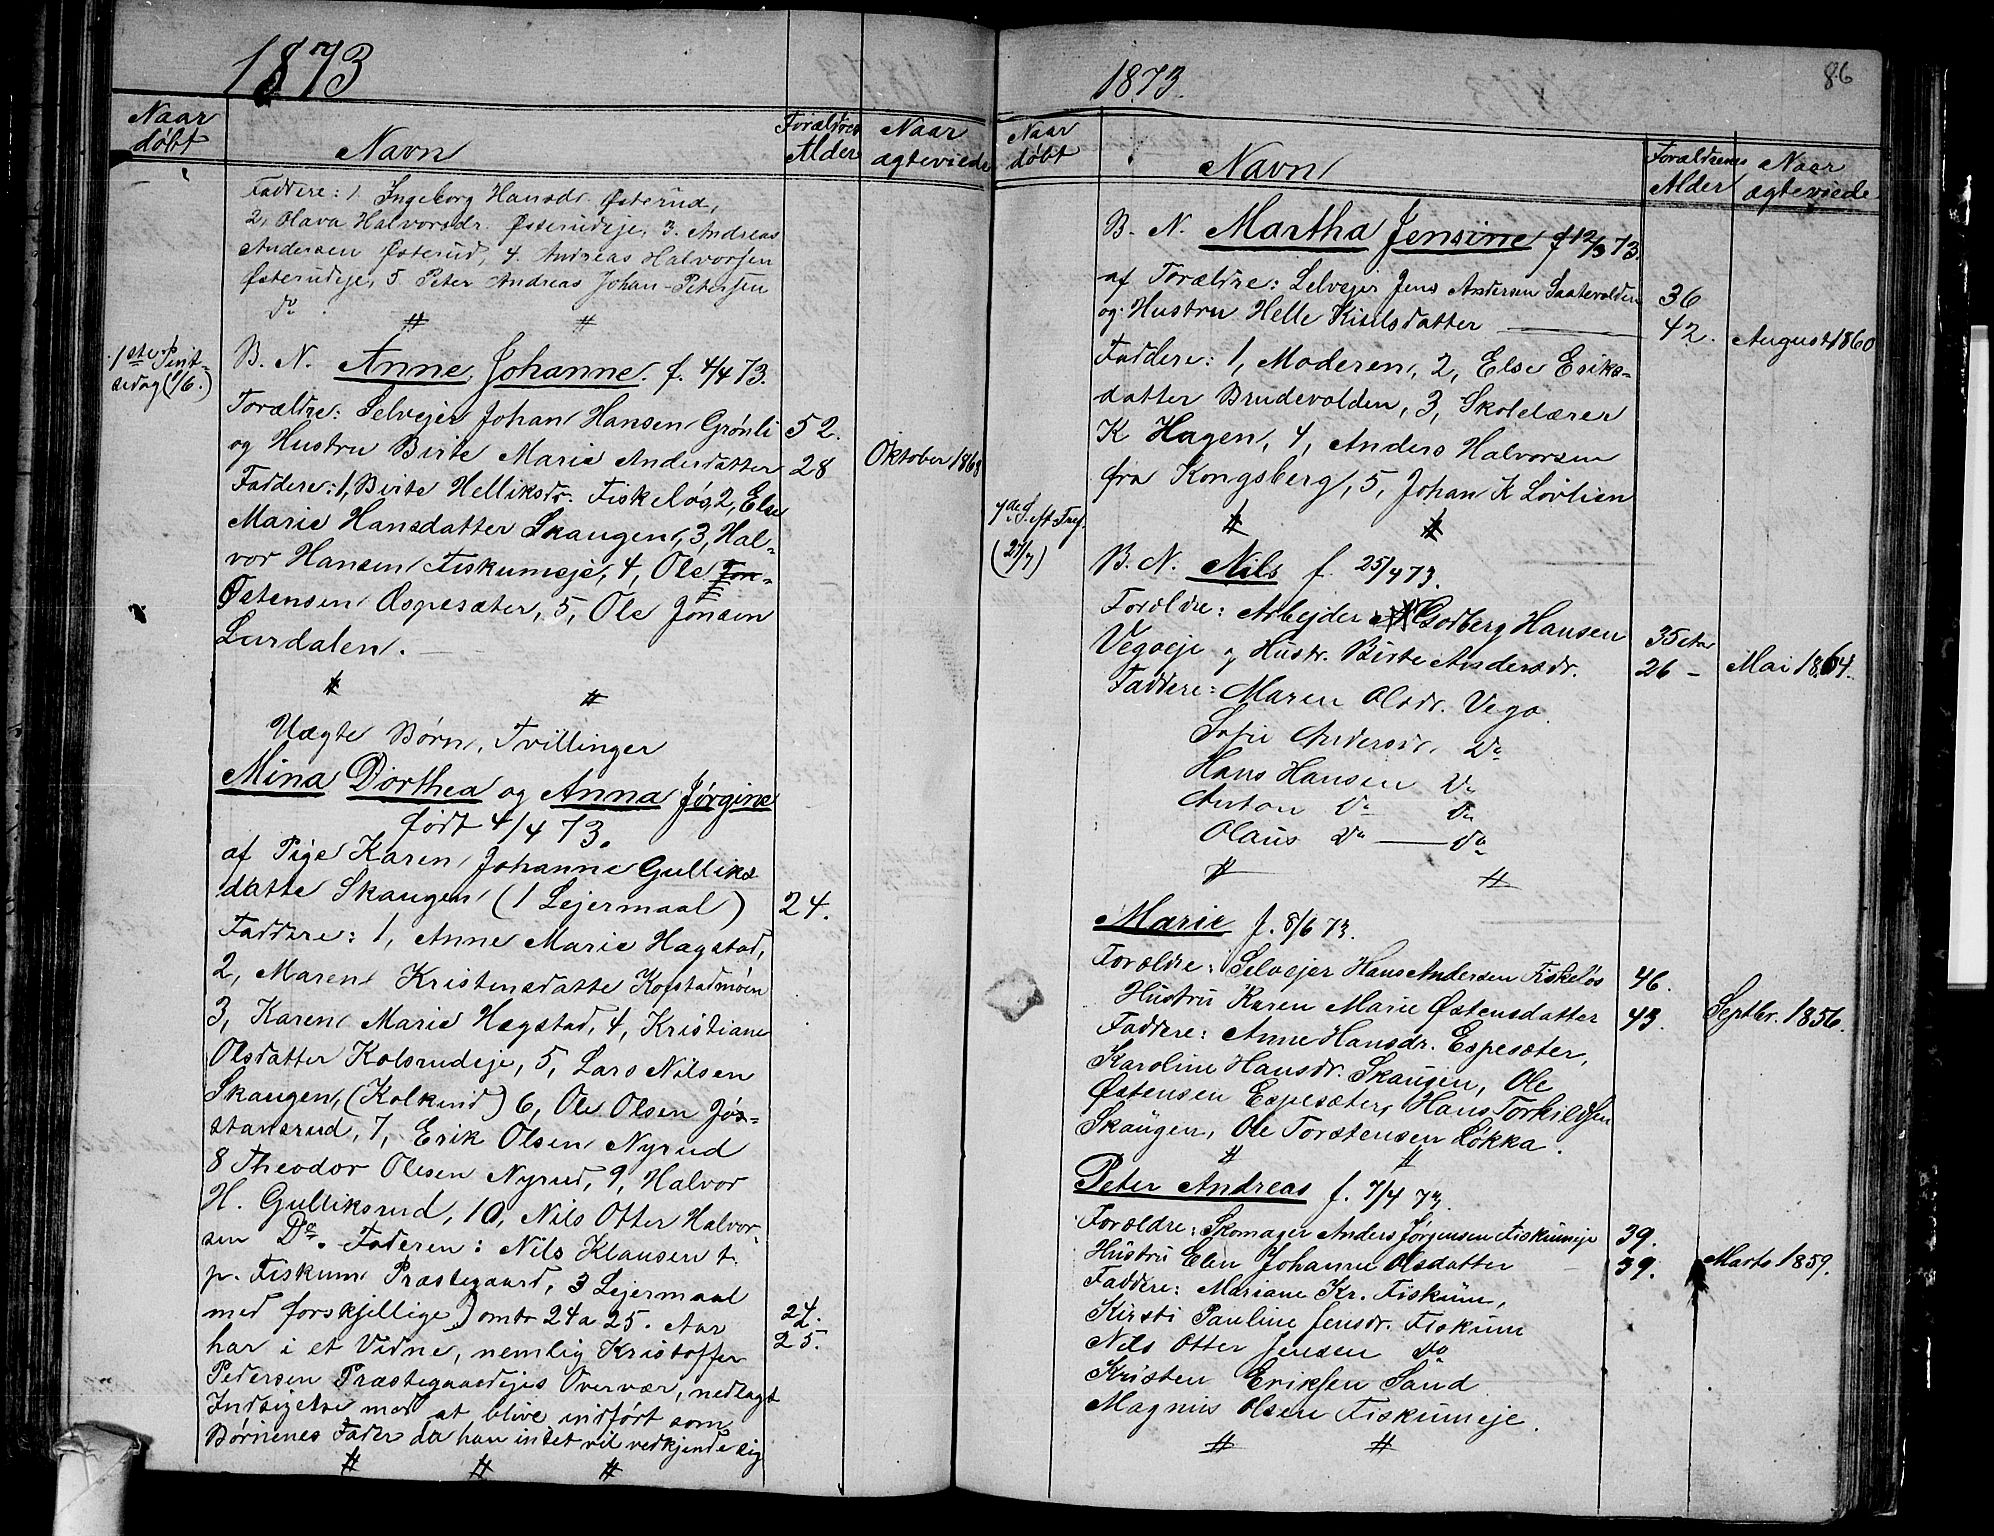 1873
Naar døbt
Navn
Forældres Alder
Naar ægteviede
Faddere: 1. Ingeborg Hansdr. Østerud,
2, Olava Halvorsdr. Østerudeje, 3. Andreas
Andersen Østerud, 4. Andreas Halvorsen
Østerudeje, 5 Peter Andreas Johan-Petersen
do.
# #
1ste Pint-
sedag (1/6.)
B. N. Anne Johanne. f. 4/4 73.
Forældre: Selvejer Johan Hansen Grønli 52.
og Hustru Birte Marie Andersdatter 28 Oktober 1868
Faddere: 1, Birte Helliksdr. Fiskeløs, 2, Else
Marie Hansdatter Skaugen, 3, Hal-
vor Hansen Fiskumeje, 4, Ole Ton-
Østensen Æspesæter, 5, Ole Jonsen
Lurdalen.
# #
Uægte Børn, Tvillinger
Mina Dorthea og Anna Jørgine
født 4/4 73.
af Pige Karen Johanne Gulliks
datte Skaugen (1 Lejermaal) 24.
Faddere: 1, Anne Marie Hagstad,
2, Maren Kristensdatte Kopstadmoen
3, Karen Marie Hægstad, 4, Kristiane
Olsdatter Kolsrudeje, 5, Lars Nilsen
Skaugen, (Kolkind) 6, Ole Olsen Jøs-
stansrud, 7, Erik Olsen Nyrud
8 Theodor Olesen Nyrud, 9, Halvor
H. Gulliksrud, 10, Nils Otter Halvor-
sen Do. Faderen: Nils Klausen t.
p. Fiskum Præstegaard, 3 Lejermaal
med forskjellige) omtr 24 a 25. Aar 24.
har i et Vidne, nemlig Kristoffer 25.
Pedersen Præstegaardejes Overvær, nedlagt
Indsigelse mod at blive indført som
Børnenes Fader da han intet vil vedkjende sig
# # #
1873.
86
Naar døbt
Navn
Forældrenes Alder
Naar ægteviede
B. N. Martha Jensine f 12/3 73.
af Forældre: Selvejer Jens Andersen Saatevolden 36
og Hustru Helle Kittilsdatter 42. August 1860
Faddere: 1, Moderen, 2, Else Eriks-
datter Brudevolden, 3, Skolelærer
K Hagen, 4, Anders Halvorsen
fra Kongsberg, 5, Johan K Løvlien
# #
7de S. eft. Tref.
(27/7)
B. N. Nils f. 25/4 73.
Forældre: Arbejder Godberg Hansen 35 Aar
Vegoeje og Hustr. Birte Andersdr. 26 - Mai 1864.
Faddere: Maren Olsdr. Vego.
Sofie Andersdr. Do
Hans Hansen Do
Anton Do Do
Olaus Do — Do
# #
Marie f. 8/6 73.
Forældre: Selvejer Hans Andersen Fiskeløs 46.
Hustru Karen Marie Østensdatter 43. Septbr. 1856.
Faddere: Anne Hansdr. Espesæter,
Karoline Hansdr. Skaugen, Ole
Østensen Espesæter, Hans Torkildsen
Skaugen, Ole Torstensen Løkka.
# #
Peter Andreas f. 7/4 73.
Forældre: Skomager Anders Jørgensen Fiskumeje 39.
Hustru Elen Johanne Olsdatter 39. Marts 1859.
Faddere: Mariane Kr. Fiskum,
Kirsti Pauline Jensdr. Fiskum
Nils Otter Jensen Do
Kristen Eriksen Sand
Magnus Olsen Fiskumeje.
# #